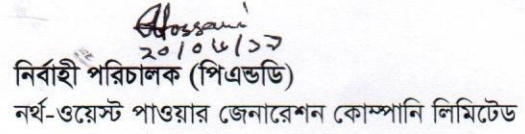 Hossain
নির্বাহী পরিচালক (পিএন্ডডি)
নর্থ-ওয়েস্ট পাওয়ার জেনারেশন কোম্পানি লিমিটেড